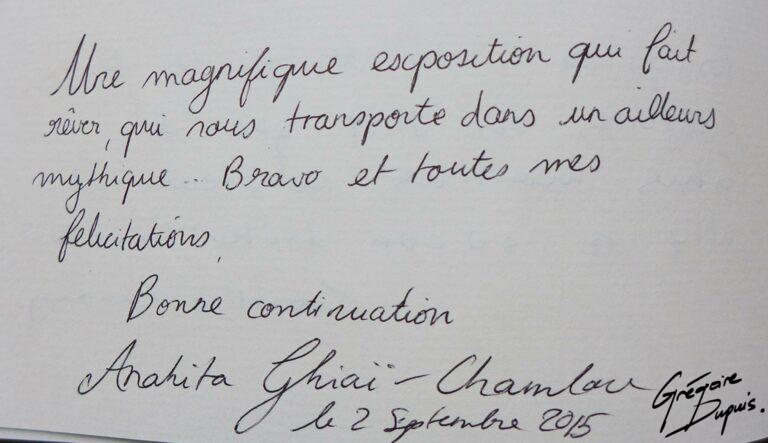 Une magnifique exposition qui fait
rêver, qui nous transporte dans un ailleurs
mythique .. Bravo et toutes mes
félicitations,
Bonne continuation
Anahita Ghiaï - Chamlou
le 2 Septembre 2015
Grégoire
Dupuis.